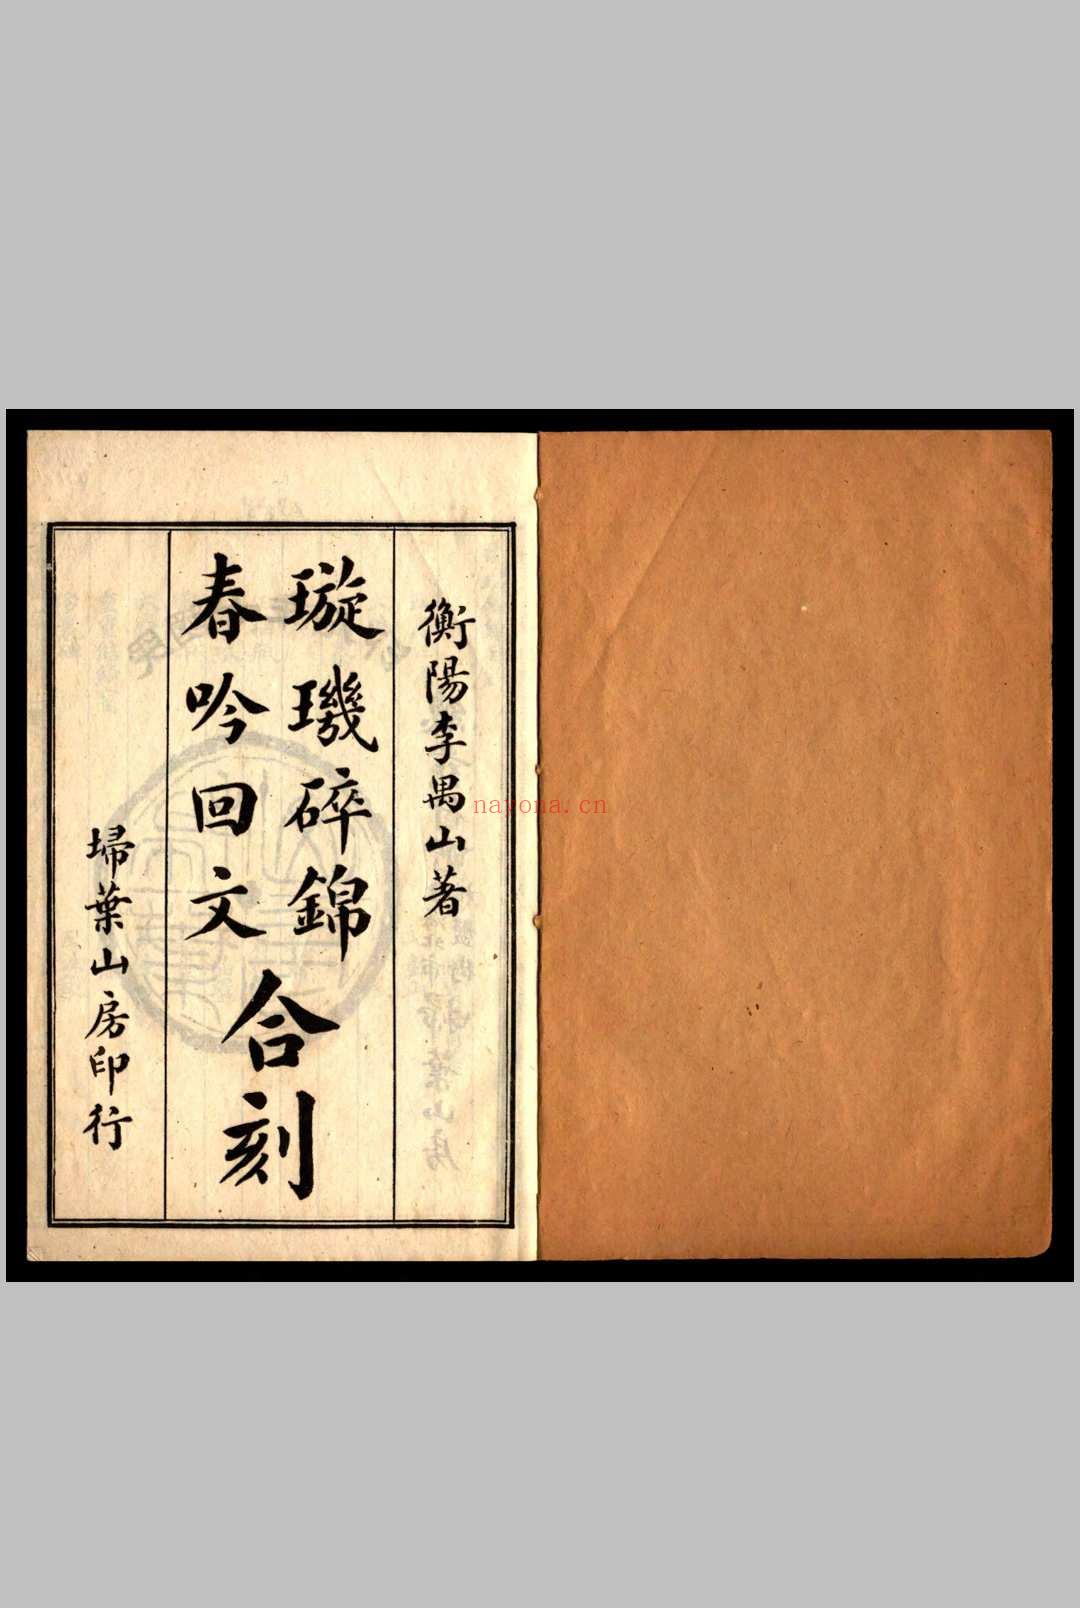 衡陽李禺山著
璇璣碎錦
春吟回文
合刻
埽葉山房印行
nayona.cn